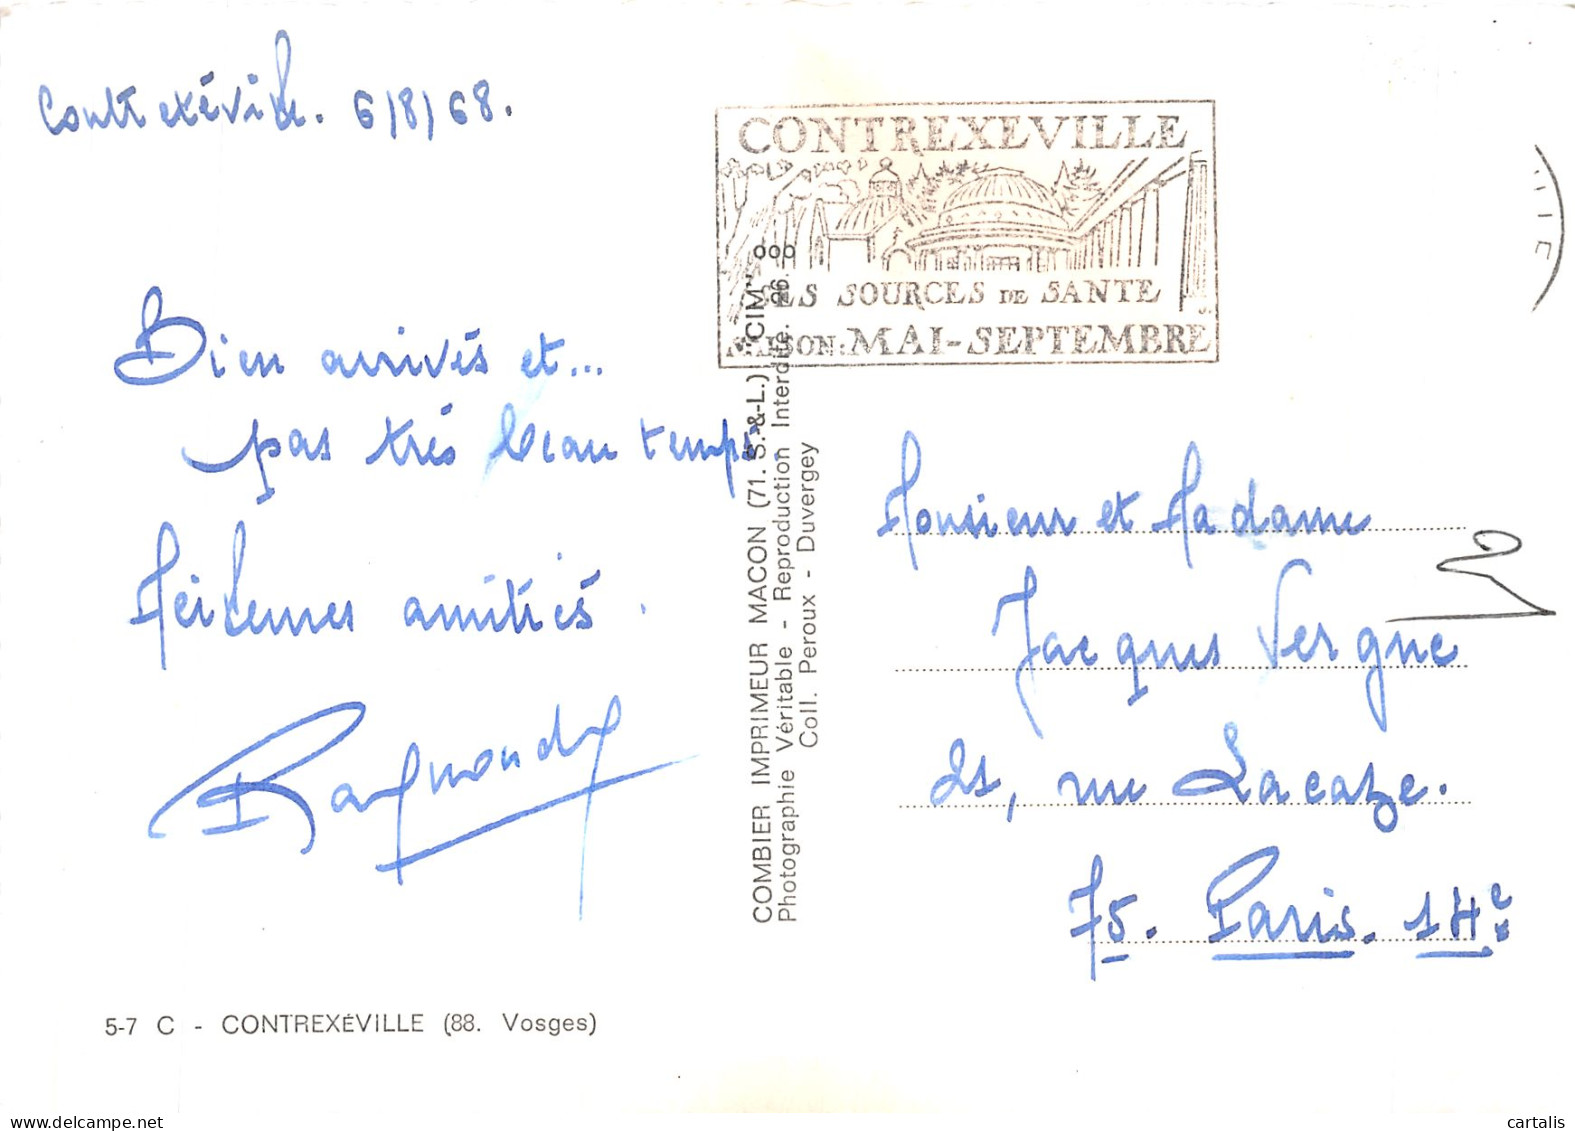 Contrexéville. 6/8/68.
Bien arrivés et...
pas très beau temps.
Meilleures amitiés.
Raymonde
5-7 C - CONTREXÉVILLE (88. Vosges)
COMBIER IMPRIMEUR MACON (71. S.-&-L.) "CIM"
Photographie Véritable - Reproduction Interdite.
Coll. Peroux - Duvergey
CONTREXEVILLE
SES SOURCES DE SANTE
SAISON: MAI-SEPTEMBRE
Monsieur et Madame
Jacques Vergne
21, rue Lacaze.
75. Paris. 14e
cartalis